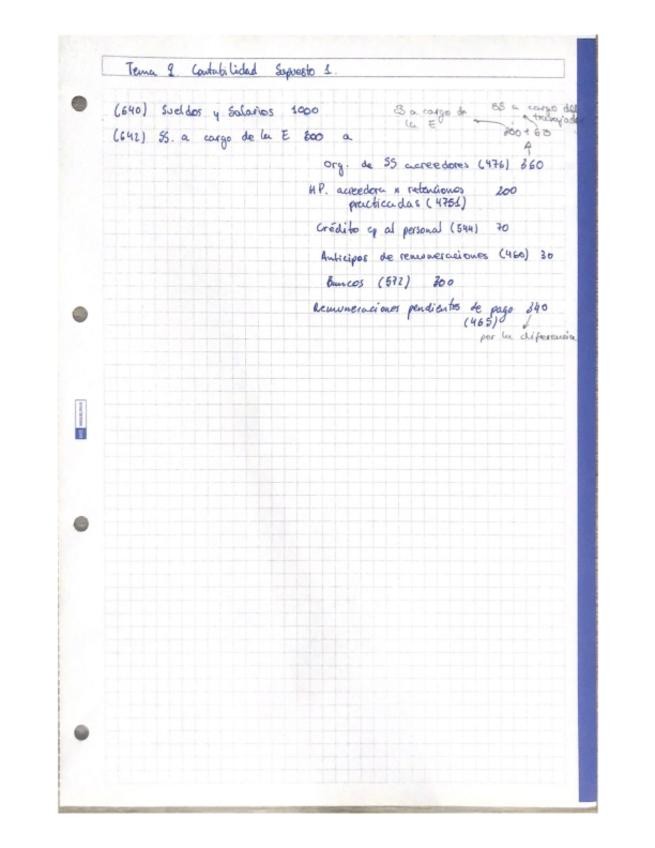 Tema 9. Contabilidad Supuesto 1.
(640) Sueldos y Salarios 1000
SS a cargo de la E
SS a cargo del trabajador
300 + 60
(642) SS. a cargo de la E 300 a
Org. de SS acreedores (476) 360
HP. acreedora x retenciones 200
practicadas (4751)
Crédito cp al personal (544) 70
Anticipos de remuneraciones (460) 30
Bancos (572) 300
Remuneraciones pendientes de pago 340
(465)
por la diferencia